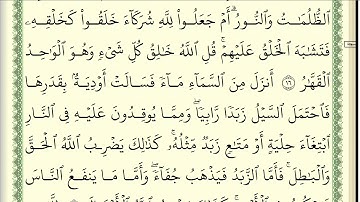 ٱلظُّلُمَٰتُ وَٱلنُّورُ ۗ أَمْ جَعَلُوا۟ لِلَّهِ شُرَكَآءَ خَلَقُوا۟ كَخَلْقِهِۦ
فَتَشَٰبَهَ ٱلْخَلْقُ عَلَيْهِمْ ۚ قُلِ ٱللَّهُ خَٰلِقُ كُلِّ شَىْءٍ وَهُوَ ٱلْوَٰحِدُ
ٱلْقَهَّٰرُ ١٦ أَنزَلَ مِنَ ٱلسَّمَآءِ مَآءً فَسَالَتْ أَوْدِيَةٌۢ بِقَدَرِهَا
فَٱحْتَمَلَ ٱلسَّيْلُ زَبَدًا رَّابِيًا ۚ وَمِمَّا يُوقِدُونَ عَلَيْهِ فِى ٱلنَّارِ
ٱبْتِغَآءَ حِلْيَةٍ أَوْ مَتَٰعٍ زَبَدٌ مِّثْلُهُۥ ۚ كَذَٰلِكَ يَضْرِبُ ٱللَّهُ ٱلْحَقَّ
وَٱلْبَٰطِلَ ۚ فَأَمَّا ٱلزَّبَدُ فَيَذْهَبُ جُفَآءً ۖ وَأَمَّا مَا يَنفَعُ ٱلنَّاسَ